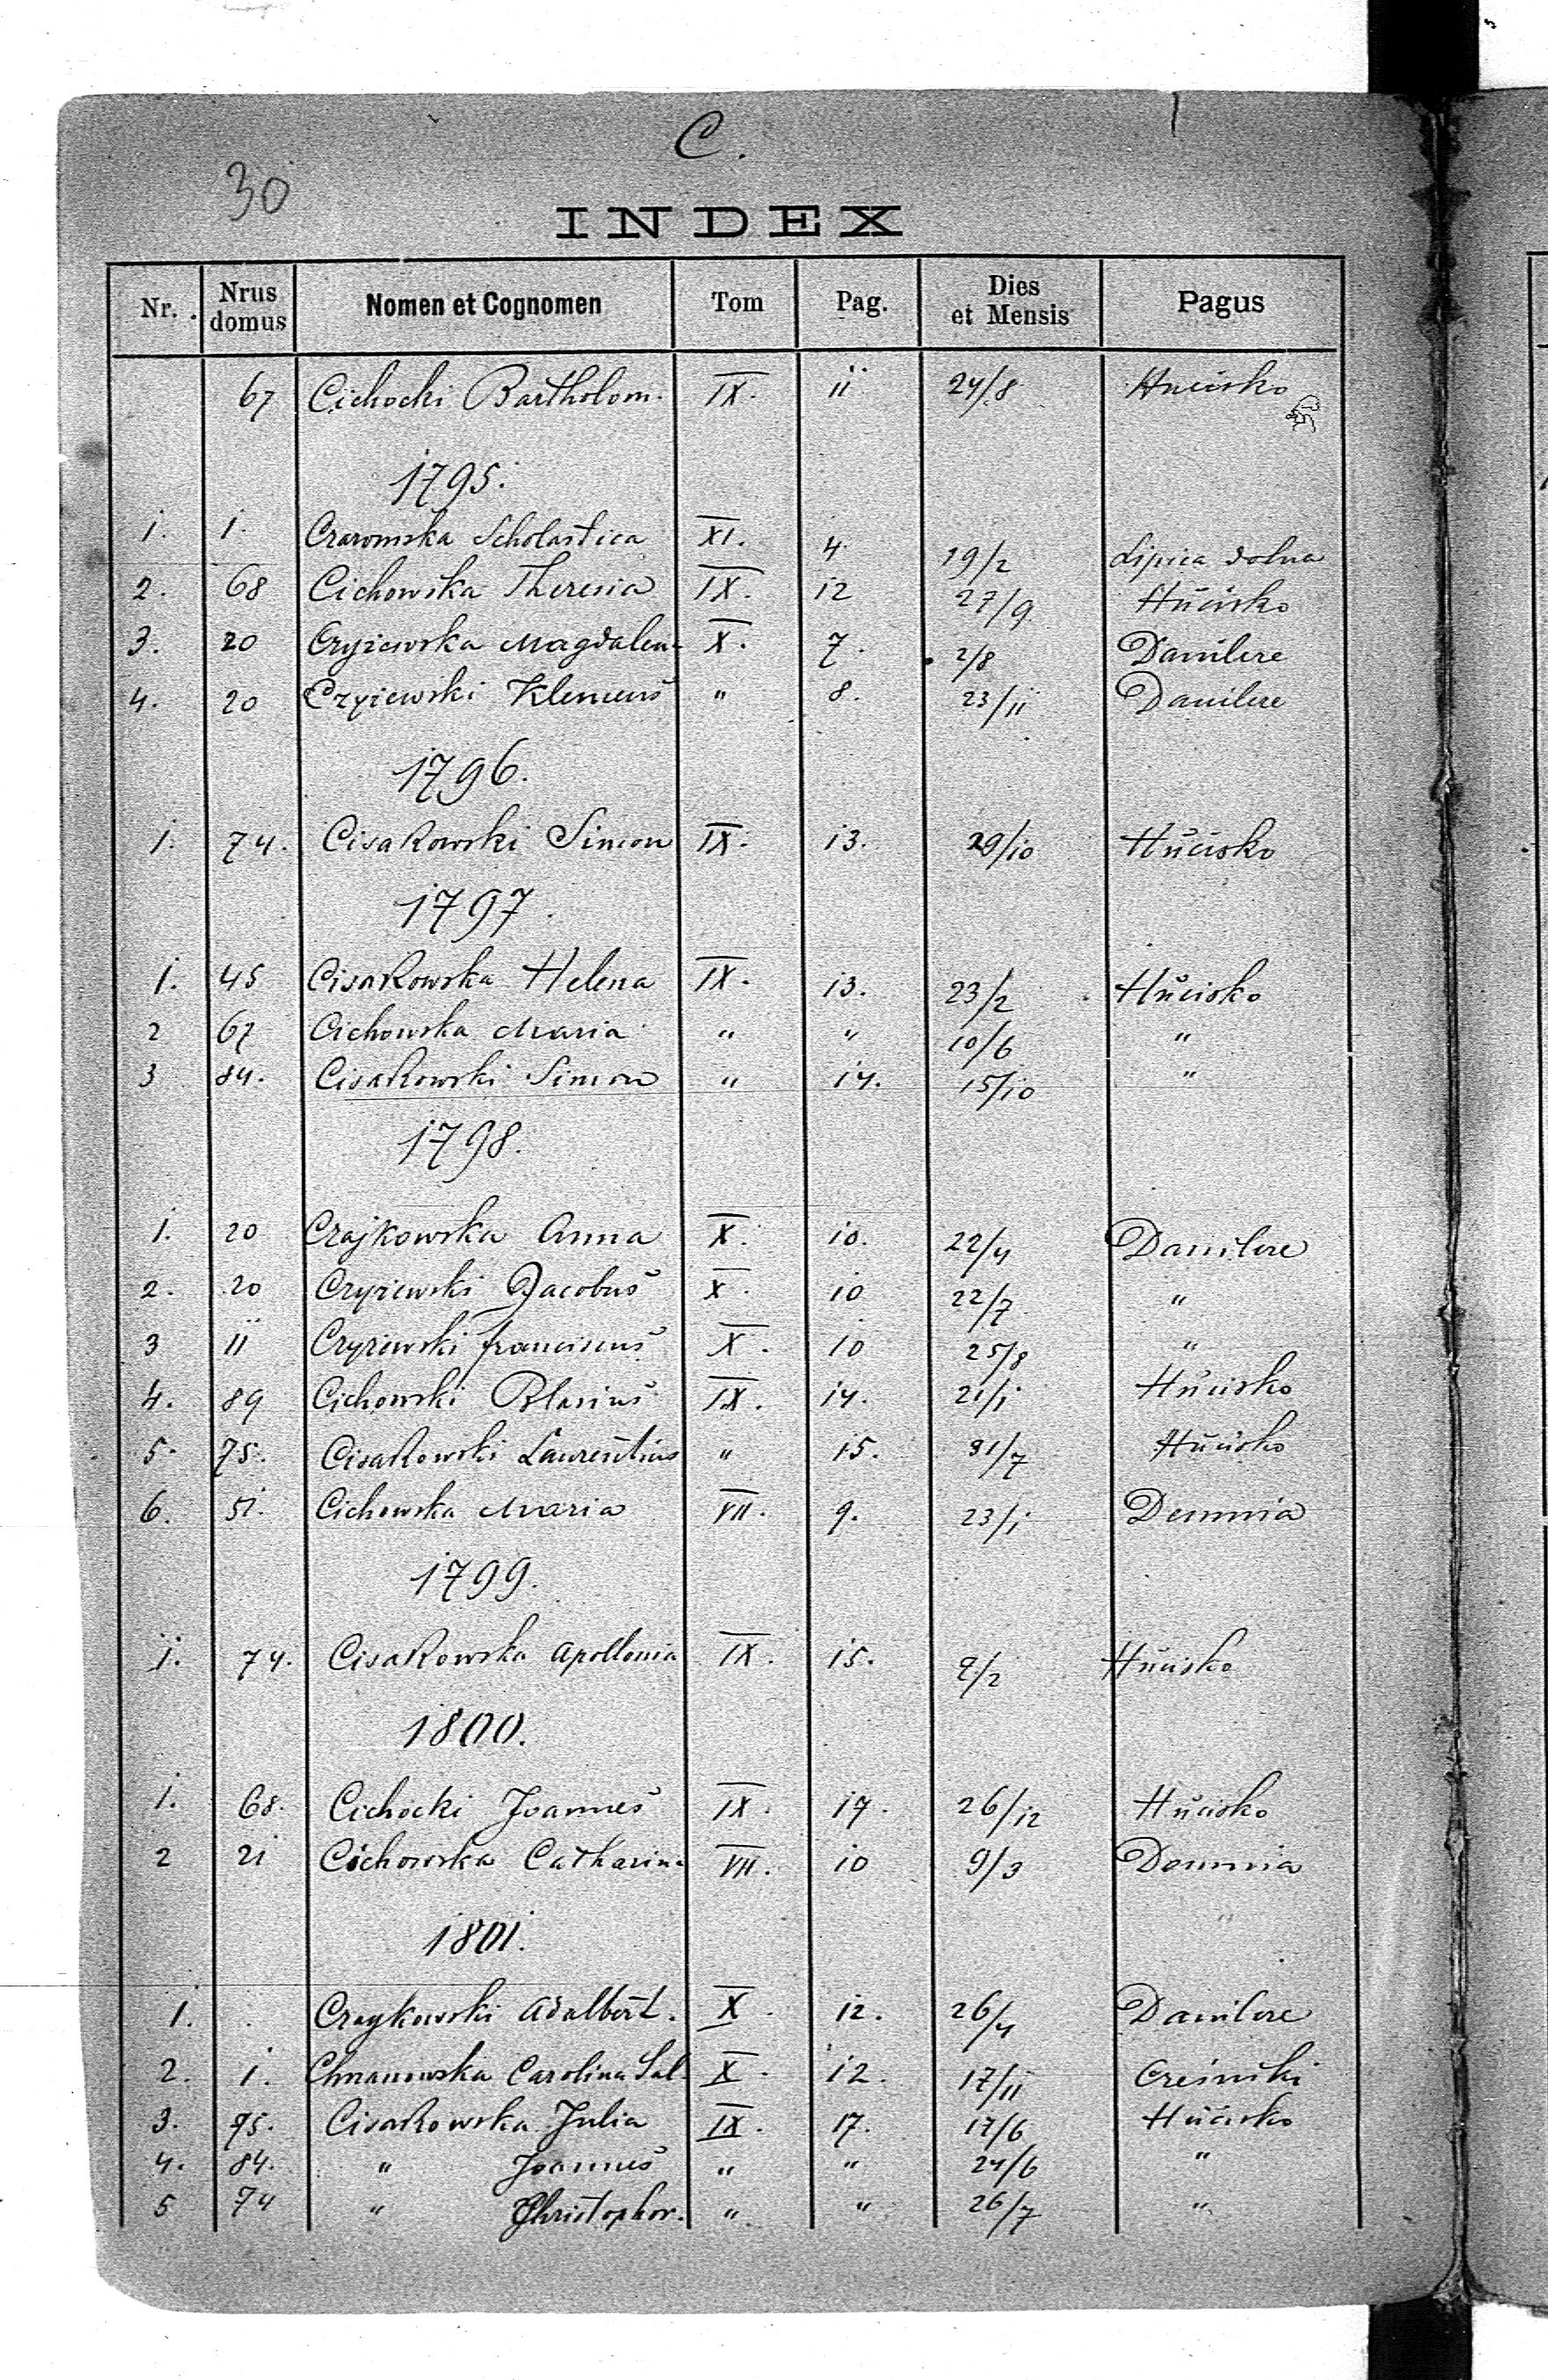 C.
30
INDEX
Nr. Nrus domus Nomen et Cognomen Tom Pag. Dies et Mensis Pagus
67 Cichocki Bartholom. IX. 11 24/8 Hucisko
1795.
1. 1. Czaromska Scholastica XI. 4. 19/2 Lipica dolna
2. 68 Cichowska Theresia IX. 12 27/9 Hucisko
3. 20 Czyzewska Magdalena X. 7. 2/8 Danilcze
4. 20 Czyzewski Klemens " 8. 23/11 Danilcze
1796.
1. 74. Cisakowski Simon IX. 13. 29/10 Hucisko
1797.
1. 45 Cisakowska Helena IX. 13. 23/2 Hucisko
2 67 Cichowska Maria " " 10/6 "
3 84. Cisakowski Simon " 14. 15/10 "
1798.
1. 20 Czajkowska Anna X. 10. 22/4 Danilcze
2. 20 Czyzewski Jacobus X. 10 22/7 "
3 11 Czyzewski franciscus X. 10 25/8 "
4. 89 Cichowski Blasius IX. 14. 21/1 Hucisko
5. 75. Cisakowski Laurentius " 15. 31/7 Hucisko
6. 51. Cichowska Maria VII. 9. 23/1 Demnia
1799.
1. 74. Cisakowska Apollonia IX. 15. 2/2 Hucisko
1800.
1. 68. Cichocki Joannes IX. 17. 26/12 Hucisko
2 21 Cichowska Catharina VII. 10 9/3 Demnia
1801.
1. Czaykowski Adalbert. X. 12. 26/4 Danilcze
2. 1. Chmanowska Carolina Sal. X. 12. 17/11 Czesniki
3. 75. Cisakowska Julia IX. 17. 17/6 Hucisko
4. 84. " Joannes " " 24/6 "
5 74 " Christophor. " " 26/7 "